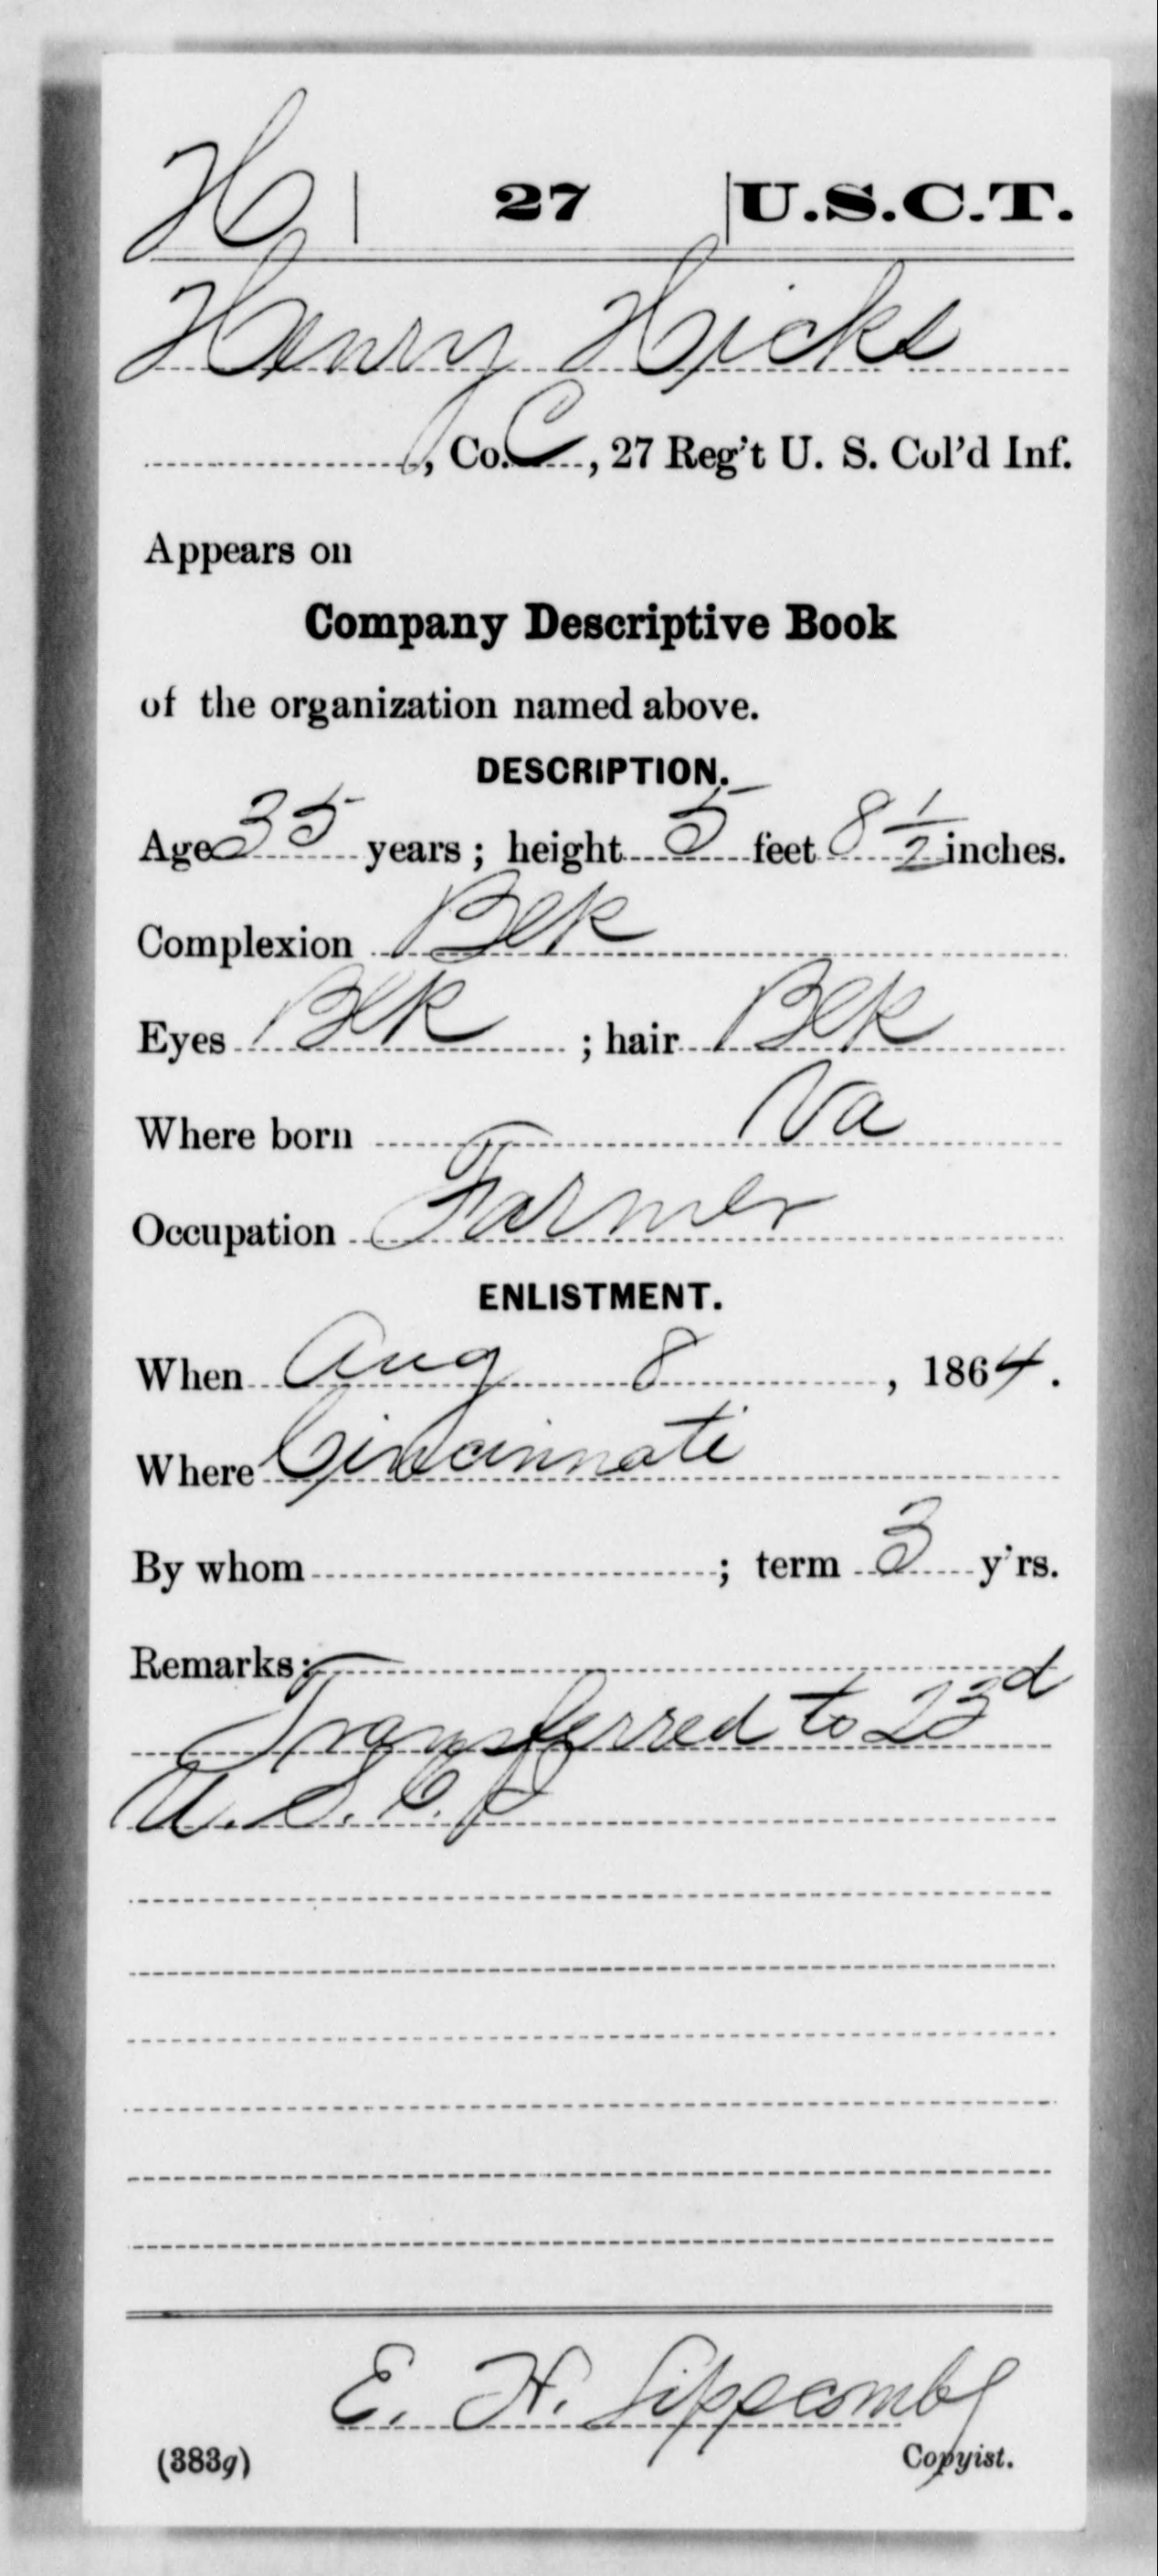 H | 27 | U.S.C.T.
Henry Hicks
, Co. C, 27 Reg't U. S. Col'd Inf.
Appears on
Company Descriptive Book
of the organization named above.
DESCRIPTION.
Age 35 years; height 5 feet 8 1/2 inches.
Complexion Blk
Eyes Blk; hair Blk
Where born Va
Occupation Farmer
ENLISTMENT.
When Aug 8, 1864.
Where Cincinnati
By whom ; term 3 y'rs.
Remarks:
Transferred to 23d
U.S.C.T
E. H. Lipscomb
(383g) Copyist.